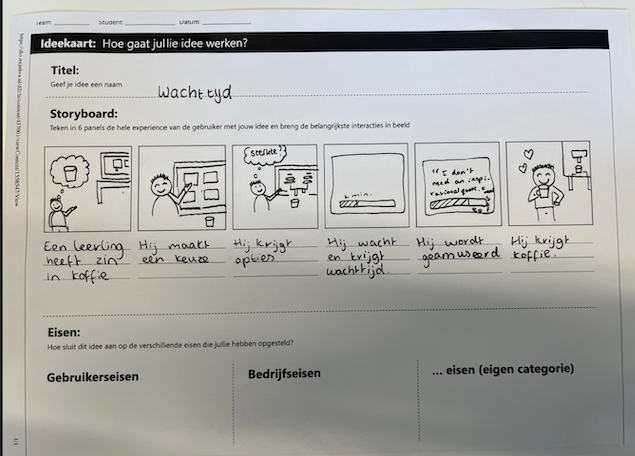 Team: Student: Datum:
Ideekaart: Hoe gaat jullie idee werken?
Titel:
Geef je idee een naam
Wachttijd
Storyboard:
Teken in 6 panels de hele experience van de gebruiker met jouw idee en breng de belangrijkste interacties in beeld
sterkte?
2 min.
"I don't
need an inspi-
rational quote.
Een leerling
heeft zin
in koffie
Hij maakt
een keuze
Hij krijgt
opties
Hij wacht
en krijgt
wachttijd.
Hij wordt
geamuseerd
Hij krijgt
koffie.
Eisen:
Hoe sluit dit idee aan op de verschillende eisen die jullie hebben opgesteld?
Gebruikerseisen
Bedrijfseisen
... eisen (eigen categorie)
1/1